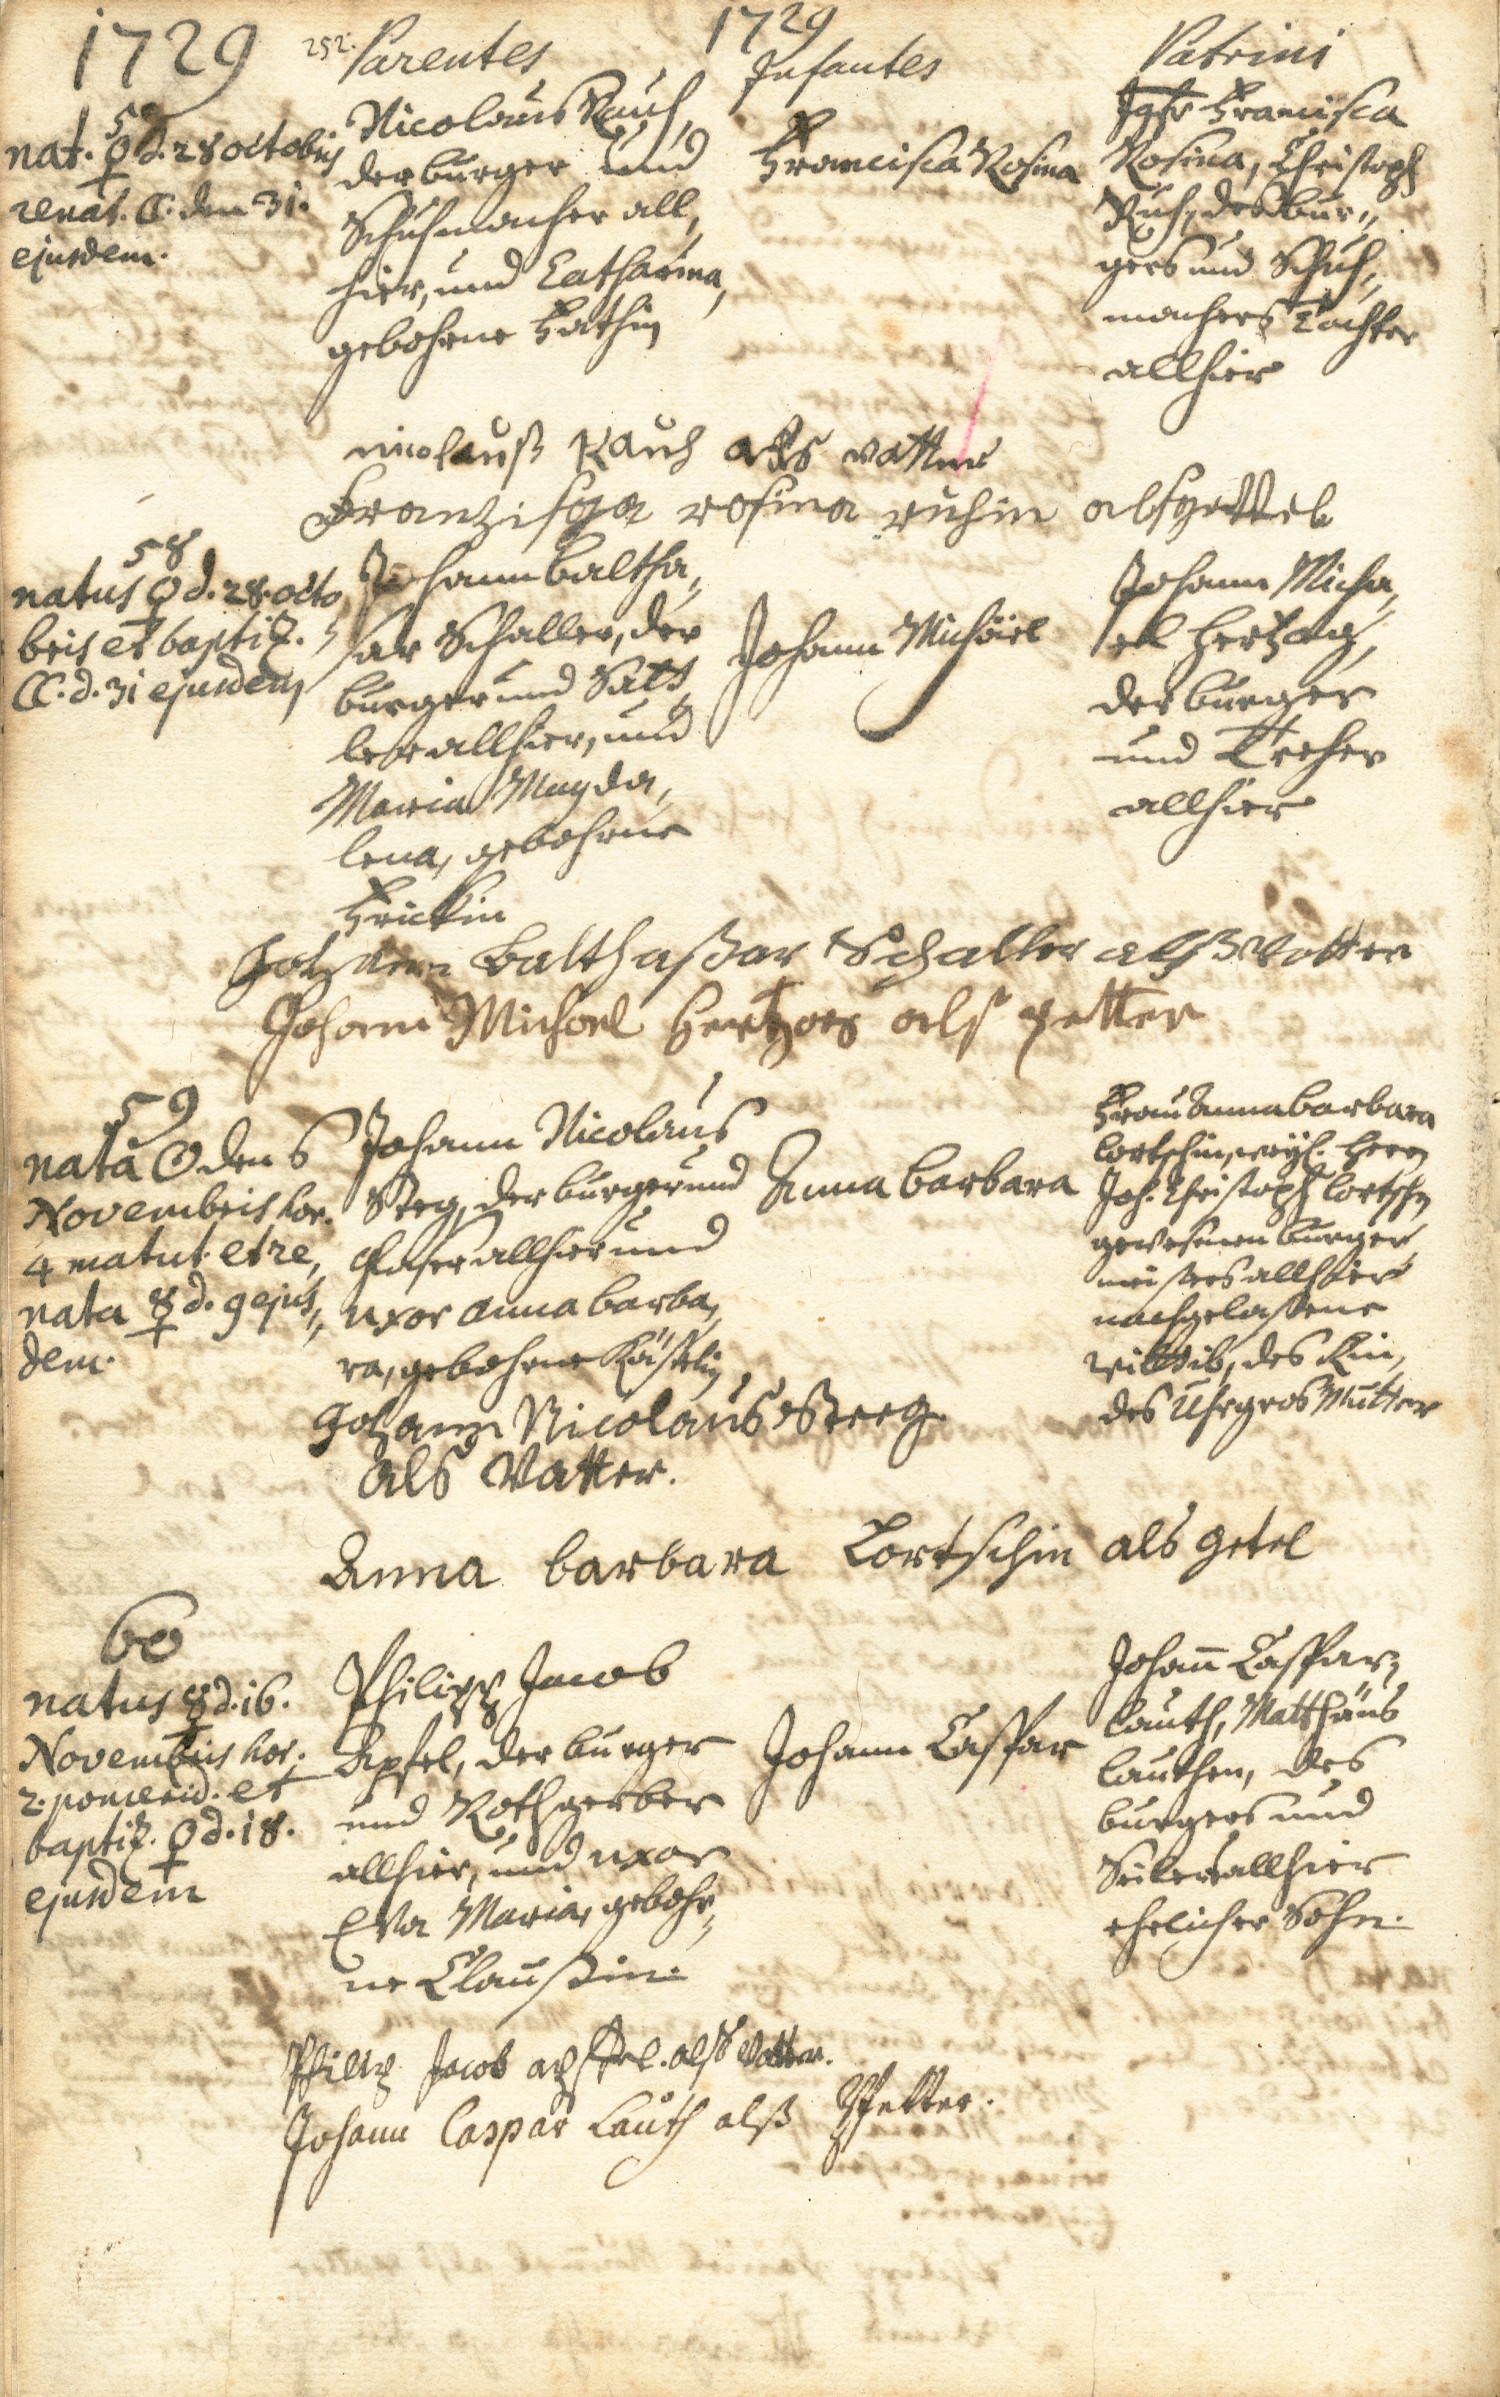 1729
252.
Parentes
1729
Infantes
Patrini
57
nat. ♀ d. 28 octobris
renat. ☾. den 31.
ejusdem.
Nicolaus Rauch,
der burger und
Schuhmacher all,,
hier, und Catharina,
gebohrne
Francisca Rosina
Jgfr Francisca
Rosina, Christoph
Ruh, des bur,,
gers und Schuh,,
machers Tochter
allhier
nicolauß Rauch als vatter
Franzisga rosina ruhin als
58
natus ♀ d. 28. octo
bris et baptiz.
☾. d. 31 ejusdem
Johann Baltha,,
sar Schaller, der
burger und Satt,,
ler allhier, und
Maria Magda,,
lena, gebohrne
Frickin
Johann Michäel
Johann Micha,,
el Hertzog,
der burger
und Dreher
allhier
Johann Balthaßar Schaller alß Vatter
Johann Michael Hertzog als petter
59
nata ☉ den 6
Novembris hor.
4 matut. et re,,
nata ☿ d. 9 ejus,,
dem.
Johann Nicolaus
Steg, der burger und
Glaser allhier und
uxor Anna barba,,
ra, gebohrne
Anna barbara
Frau Anna barbara
Lortschin, weyl. Herrn
Joh. Christoph Lortschen
gewesenen burger
meisters allhier
nachgelaßene
wittib, des Kin,,
des Uhrgros Mutter
Johann Nicolaus Steeg
als Vatter.
Anna barbara Lortschin als getel
60
natus ☿ d. 16.
Novembris hor.
2. pomerid. et
baptiz. ♀ d. 18.
ejusdem
Philipp Jacob
Apfel, der burger
und Rothgerber
allhier, und uxor
Eva Maria, gebohr,,
ne Claußin.
Johann Caspar
Johann Caspar
Lauth, Matthäus
Lauthen, des
burgers und
Seilers allhier
ehelicher Sohn.
Philip Jacob apffel. alß Vatter.
Johann Caspar Lauth alß Pfetter.